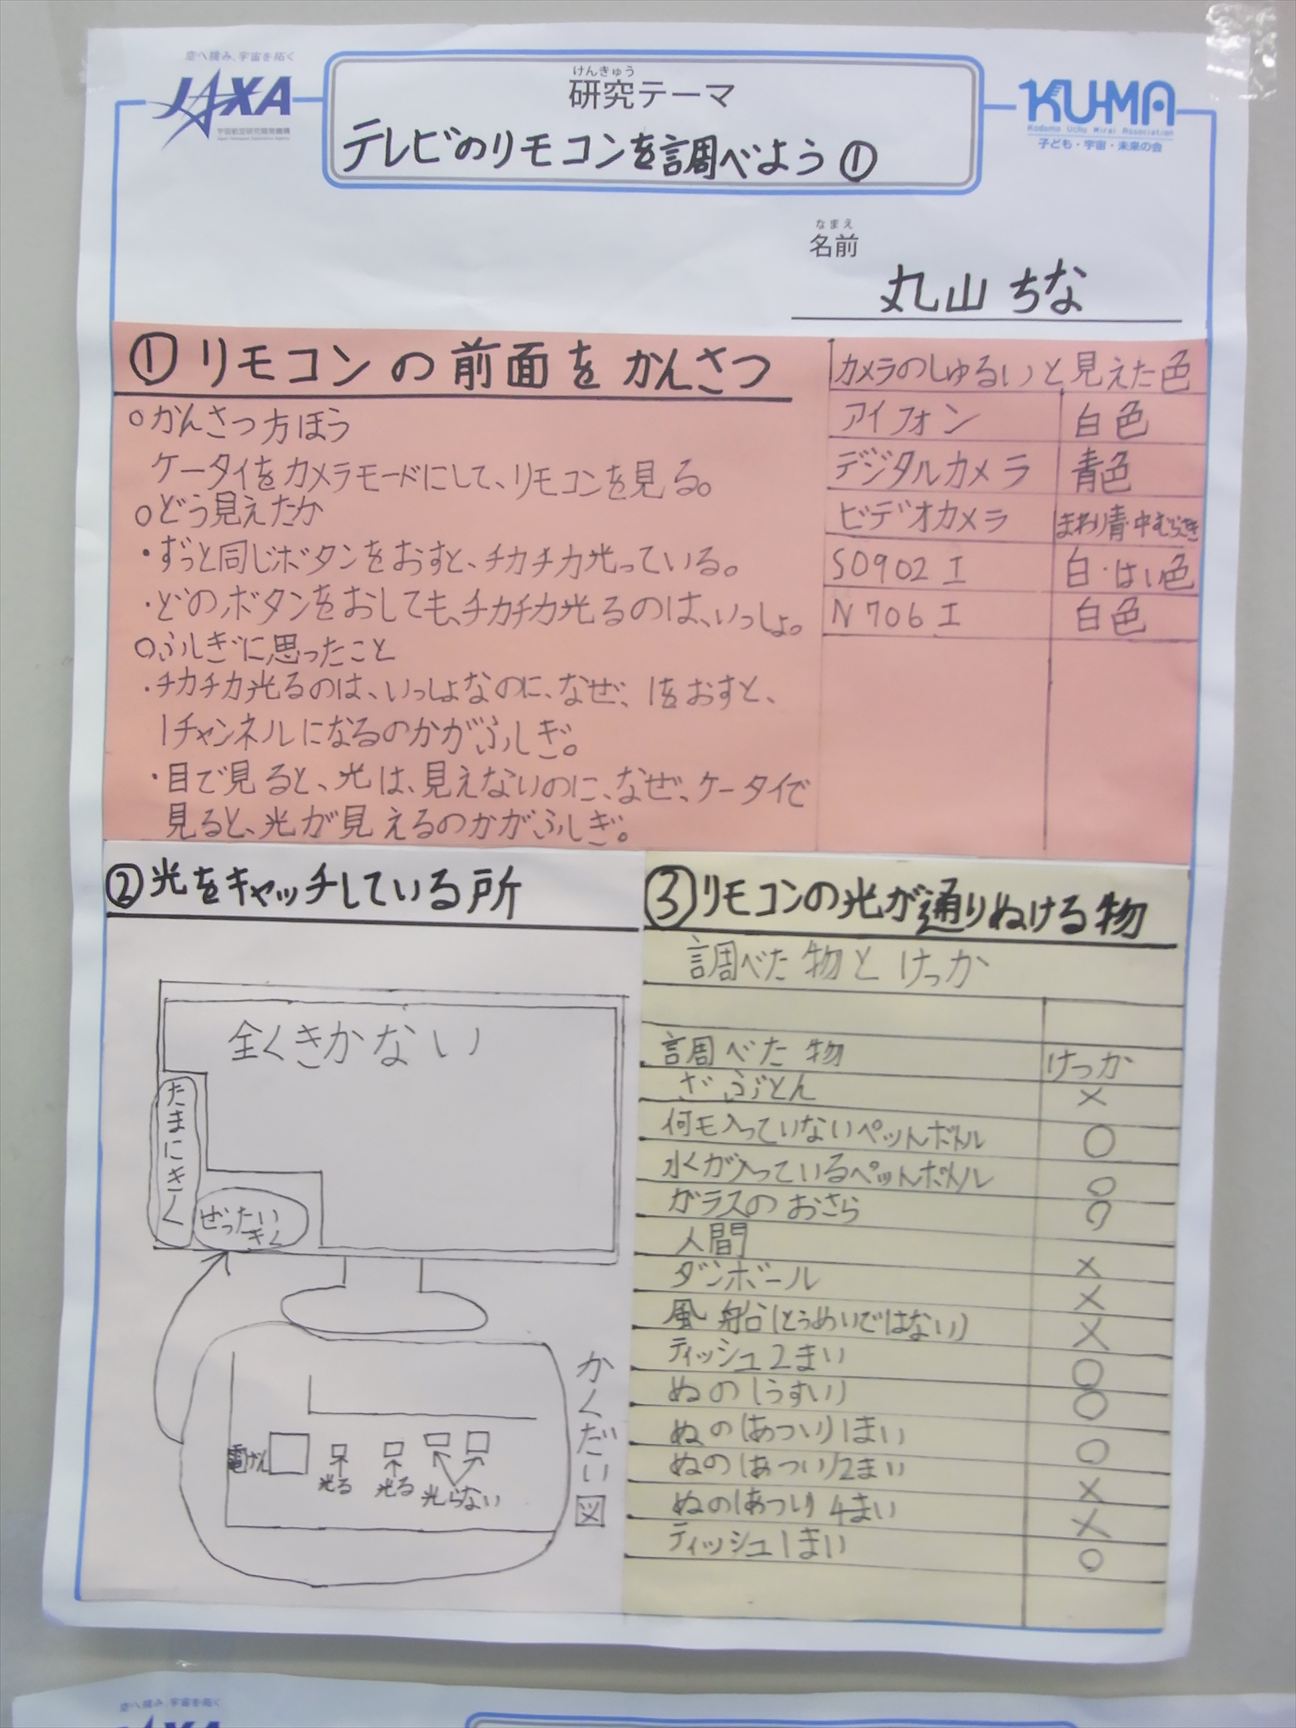 空へ挑み、宇宙を拓く
JAXA
宇宙航空研究開発機構
Japan Aerospace Exploration Agency
けんきゅう
研究テーマ
テレビのリモコンを調べよう①
KU-MA
Kodomo Uchu Mirai Association
子ども・宇宙・未来の会
なまえ
名前
丸山ちな
①リモコンの前面をかんさつ
○かんさつ方ほう
ケータイをカメラモードにして、リモコンを見る。
○どう見えたか
・ずっと同じボタンをおすと、チカチカ光っている。
・どのボタンをおしても、チカチカ光るのは、いっしょ。
○ふしぎに思ったこと
・チカチカ光るのは、いっしょなのに、なぜ、1をおすと、
1チャンネルになるのかがふしぎ。
・目で見ると、光は、見えないのに、なぜ、ケータイで
見ると、光が見えるのかがふしぎ。
カメラのしゅるいと見えた色
アイフォン 白色
デジタルカメラ 青色
ビデオカメラ まわり青・中むらさき
SO902I 白・はい色
N706I 白色
②光をキャッチしている所
全くきかない
たまにきく
ぜったい
きく
かくだい図
電げん
光る
光る
光らない
③リモコンの光が通りぬける物
調べた物とけっか
調べた物 けっか
ざぶとん ×
何モ入っていないペットボトル ○
水くが入っているペットボトル ○
ガラスのおさら ○
人間 ×
ダンボール ×
風船(とうめいではない) ×
ティッシュ2まい ○
ぬの(うすい) ○
ぬの(あつい)1まい ○
ぬの(あつい)2まい ×
ぬの(あつい)4まい ×
ティッシュ1まい ○
空へ挑み、宇宙を拓く